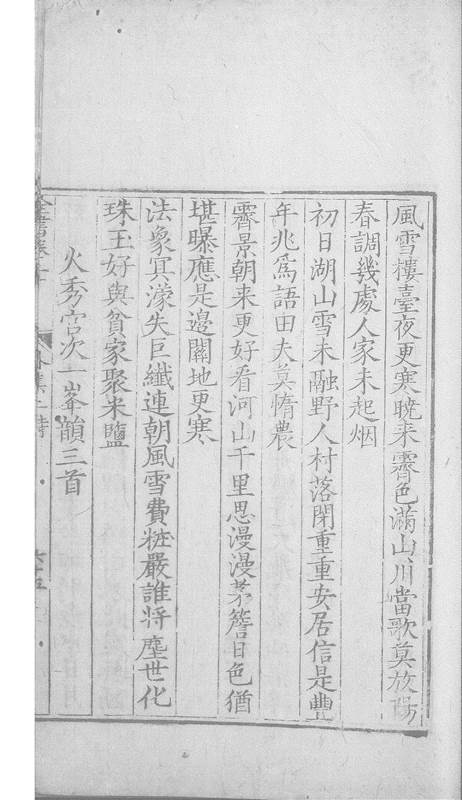 風雪樓臺夜更寒曉来霽色滿山川當歌莫放陽
春調幾處人家未起烟
初日湖山雪未融野人村落閉重重安居信是豐
年兆為語田夫莫惰農
霽景朝来更好看河山千里思漫漫茅簷日色猶
堪曝應是邊關地更寒
法象冥濛失巨纖連朝風雪費粧嚴誰将塵世化
珠玉好與貧家聚米鹽
火秀宮次一峯韻三首
全書卷二十
外集二詩